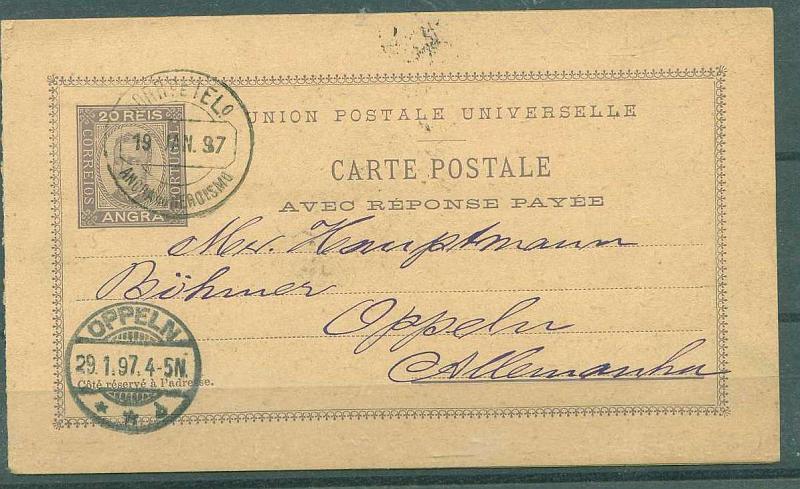 20 REIS
CORREIOS
ANGRA
19 JAN. 97
UNION POSTALE UNIVERSELLE
CARTE POSTALE
AVEC RÉPONSE PAYÉE
Hauptmann
Böhmer
Oppeln
Allemanha
OPPELN
29.1.97. 4-5N.
Côté réservé à l'adresse.